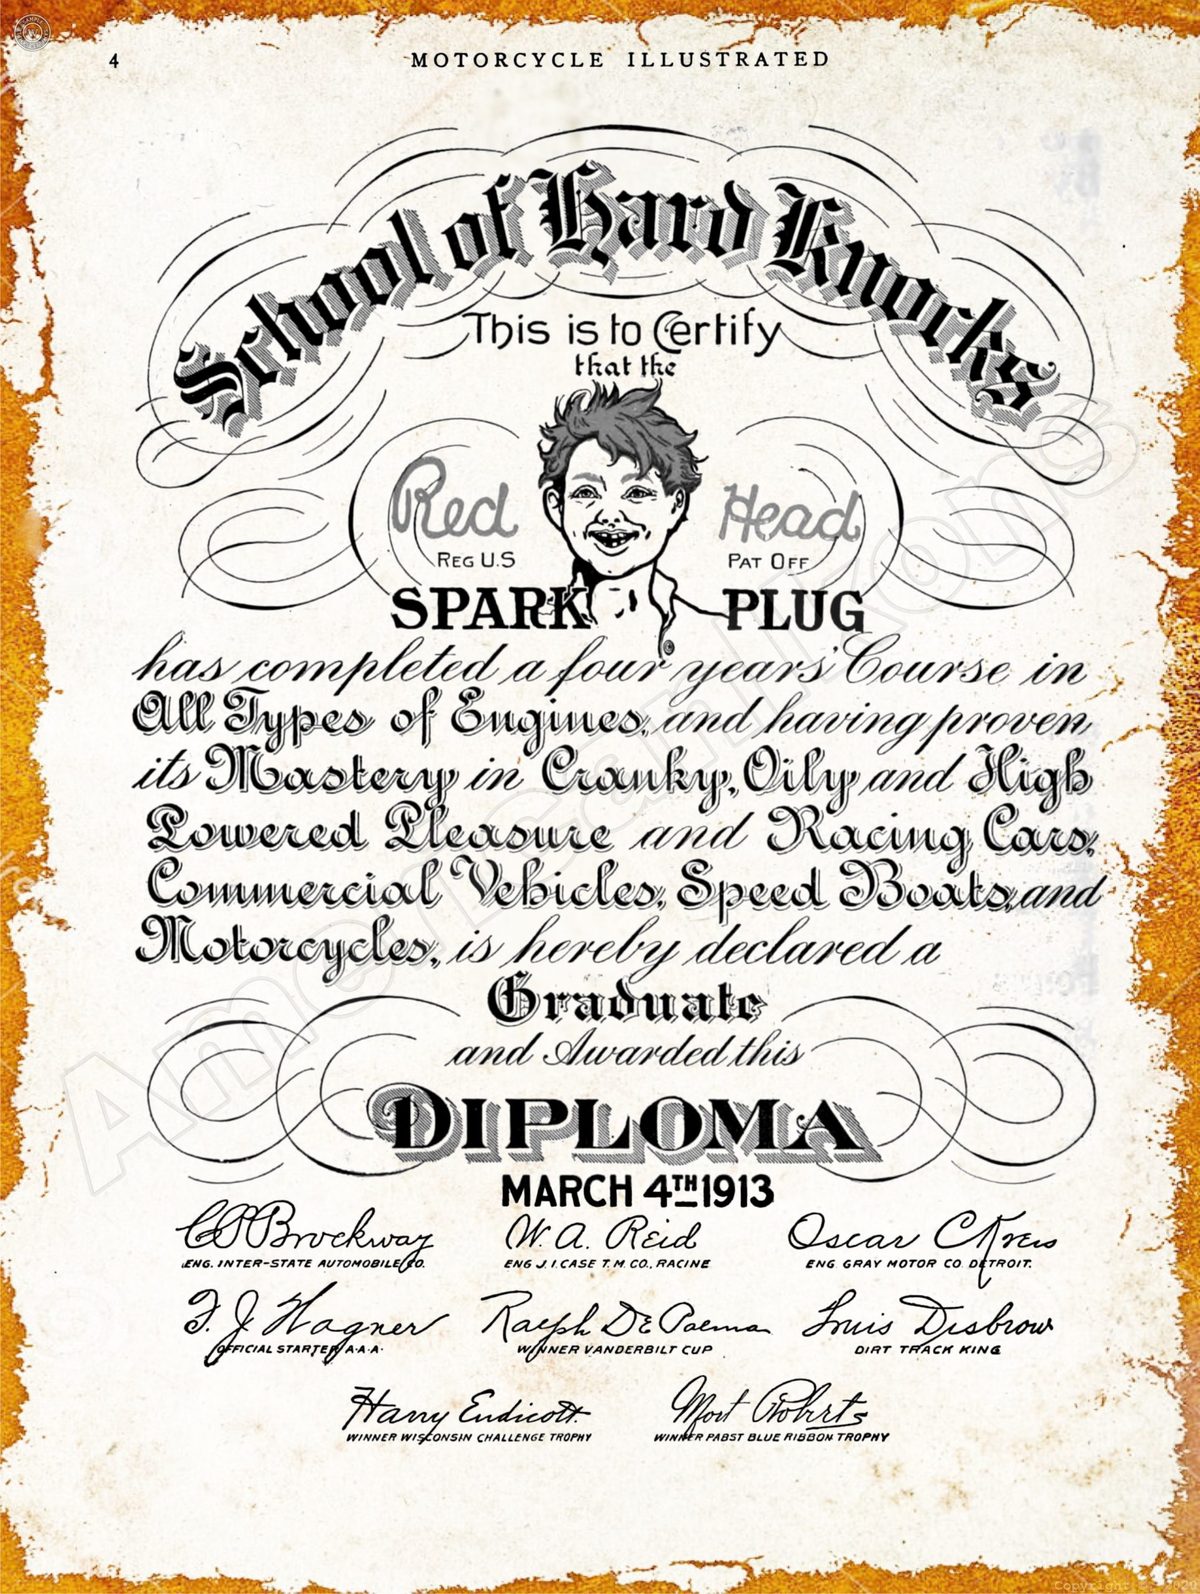 4 MOTORCYCLE ILLUSTRATED
School of Hard Knocks
This is to Certify
that the
Red Head
REG U.S PAT OFF
SPARK PLUG
has completed a four years' Course in
All Types of Engines, and having proven
its Mastery in Cranky, Oily and High
Powered Pleasure and Racing Cars,
Commercial Vehicles, Speed Boats, and
Motorcycles, is hereby declared a
Graduate
and Awarded this
DIPLOMA
MARCH 4TH 1913
C P Brockway W. A. Reid Oscar C Kreis
ENG. INTER-STATE AUTOMOBILE CO. ENG J. I. CASE T. M. CO., RACINE ENG. GRAY MOTOR CO. DETROIT.
F. J. Wagner Ralph De Palma Louis Disbrow
OFFICIAL STARTER A.A.A. WINNER VANDERBILT CUP DIRT TRACK KING
Harry Endicott. Mort Roberts
WINNER WISCONSIN CHALLENGE TROPHY WINNER PABST BLUE RIBBON TROPHY
American Ikons